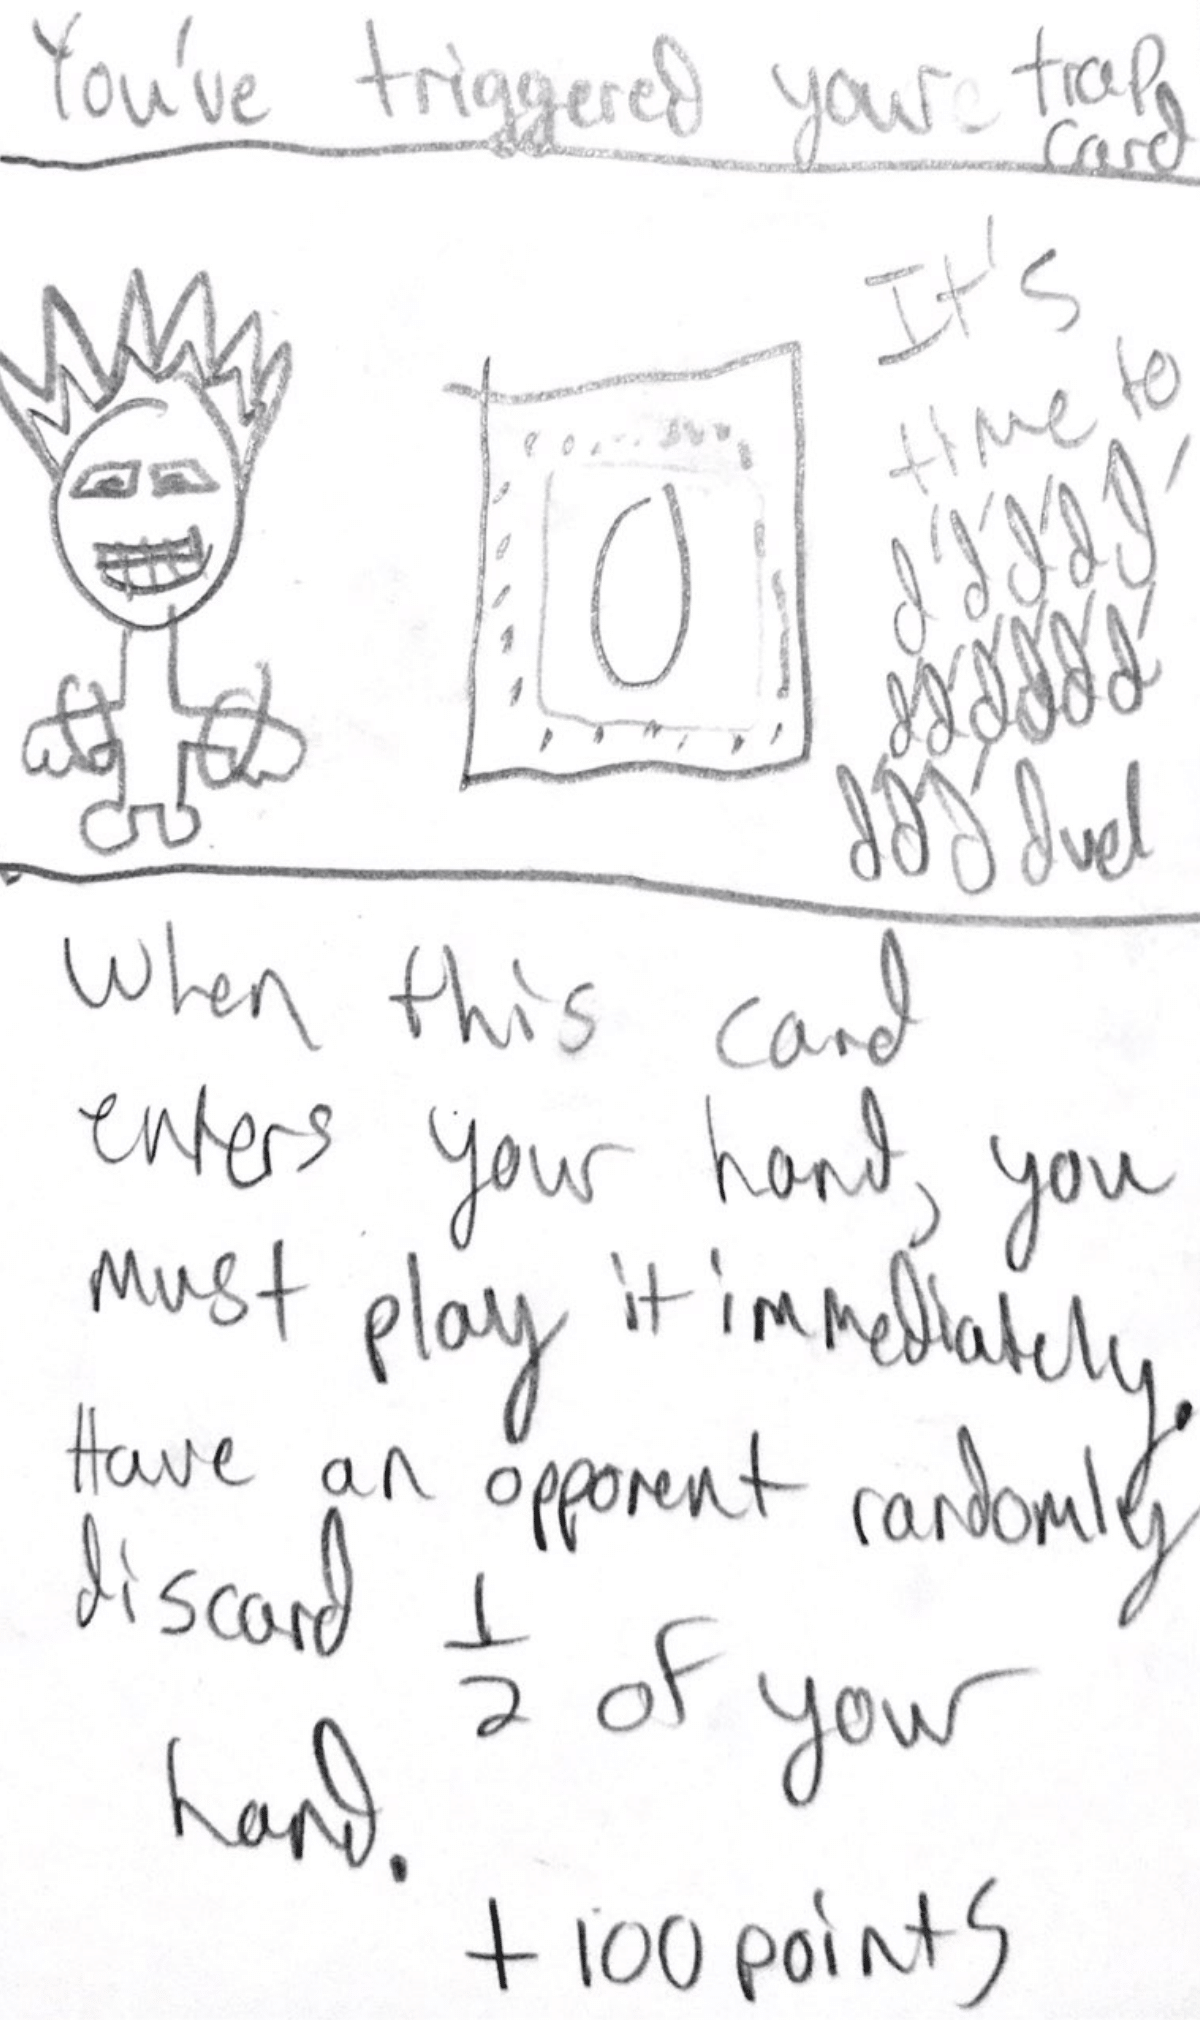 You've triggered your trap
card
It's
time to
d d d d d
d d d d d d
d d d duel
When this card
enters your hand, you
must play it immediately.
Have an opponent randomly
discard 1/2 of your
hand.
+100 points